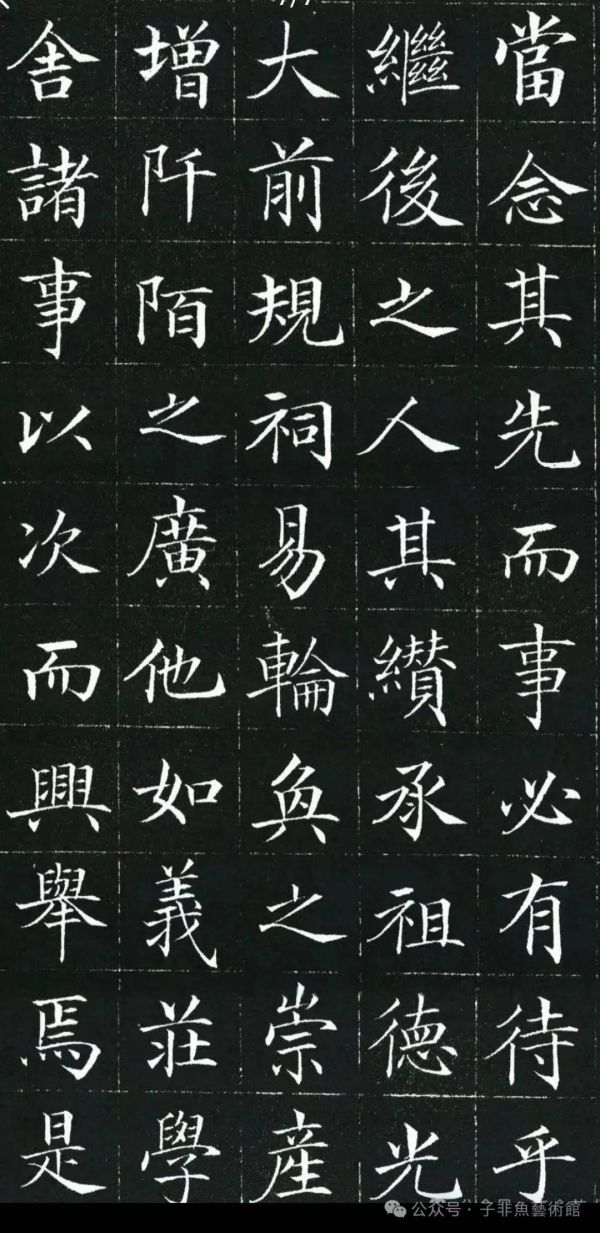 當念其先而事必有待乎
繼後之人其纘承祖德光
大前規祠易輪奐之崇產
增阡陌之廣他如義莊學
舍諸事以次而興舉焉是
公众号:子非魚藝術館